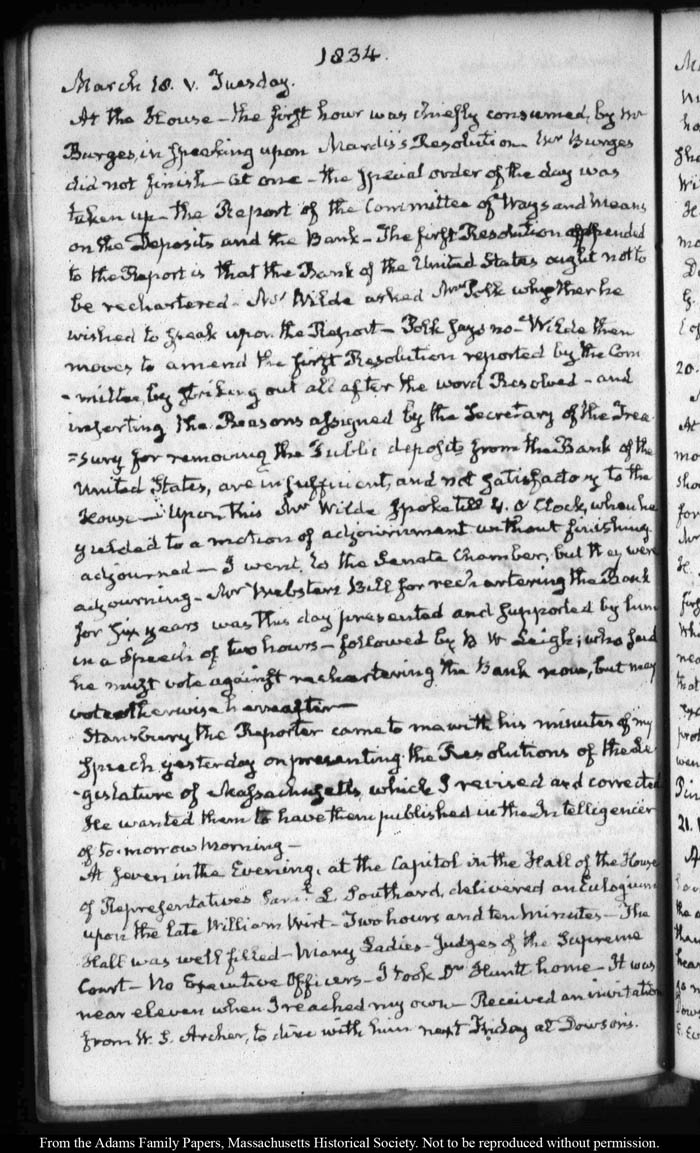 1834.
March 18. V. Tuesday.
At the House — the first hour was chiefly consumed, by Mr
Burges, in speaking upon Mardis's Resolution. Mr Burges
did not finish — at one — the special order of the day was
taken up — the Report of the Committee of Ways and Means
on the Deposits and the Bank — The first Resolution appended
to the Report is that the Bank of the United States ought not to
be rechartered. Mr Wilde asked Mr Polk whether he
wished to speak upon the Report — Polk says no — Wilde then
moves to amend the first Resolution reported by the Com
-mittee, by striking out all after the word Resolved — and
inserting the Reasons assigned by the Secretary of the Trea
=sury for removing the Public deposits from the Bank of the
United States, are insufficient, and not satisfactory to the
House — Upon this Mr Wilde spoke till 4. O'Clock, when he
yielded to a motion of adjournment without finishing.
adjourned — I went to the Senate Chamber, but they were
adjourning — Mr Webster's Bill for rechartering the Bank
for six years was this day presented and supported by him
in a Speech of two hours — followed by B W Leigh; who said
he must vote against rechartering the Bank now, but may
vote otherwise hereafter —
Stansbury the Reporter came to me with his minutes of my
speech yesterday on presenting the Resolutions of the Le
-gislature of Massachusetts, which I revised and corrected
He wanted them to have them published in the Intelligencer
of to-morrow Morning —
At seven in the Evening, at the Capitol in the Hall of the House
of Representatives Saml. L. Southard, delivered an Eulogium
upon the late William Wirt — Two hours and ten Minutes — The
Hall was well filled — Many Ladies — Judges of the Supreme
Court — No Executive Officers — I took Dr Huntt home — It was
near eleven when I reached my own — Received an invitation
from W. S. Archer, to dine with him next Friday at Dowson's.
From the Adams Family Papers, Massachusetts Historical Society. Not to be reproduced without permission.